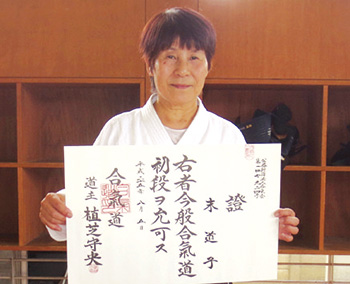 證
末 道子
右者今般合氣道
初段ヲ允可ス
平成二五年 八月 五日
合氣道
道主 植芝守央